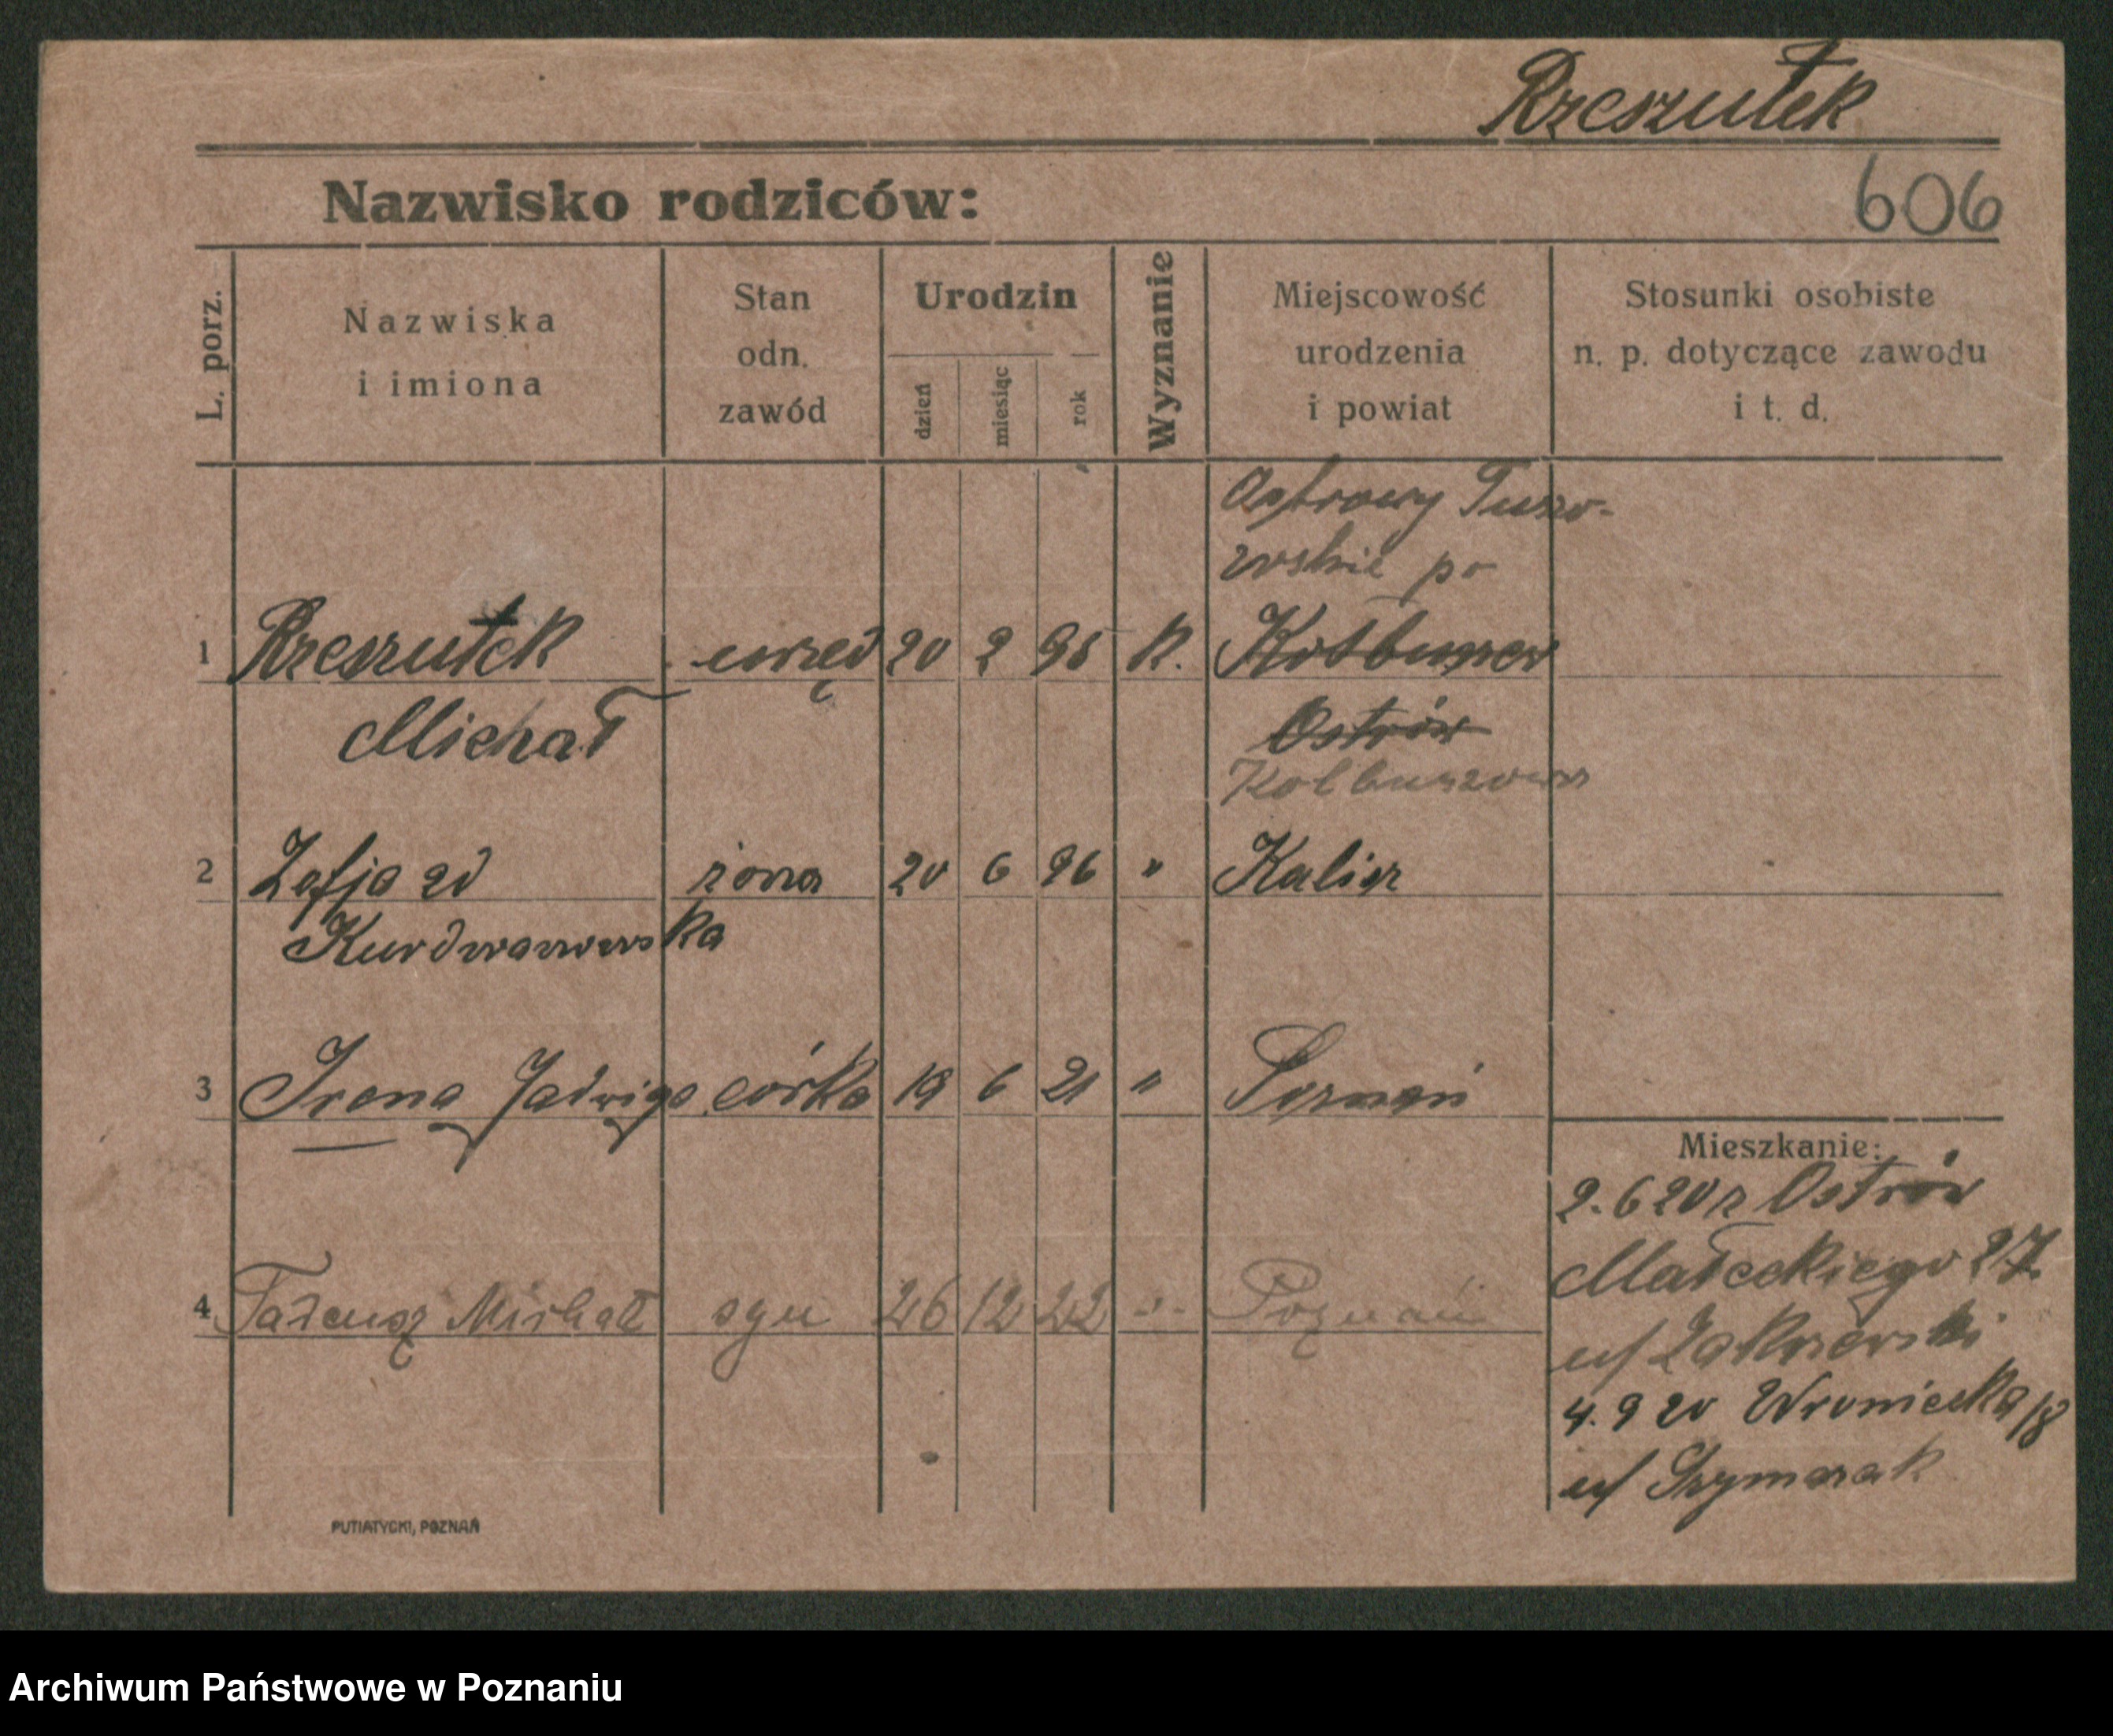 Rzeszutek
Nazwisko rodziców:
606
L. porz.
Nazwiska
i imiona
Stan
odn.
zawód
Urodzin
dzień
miesiąc
rok
Wyznanie
Miejscowość
urodzenia
i powiat
Stosunki osobiste
n. p. dotyczące zawodu
i t. d.
Ostrowy Tuszo-
wskie po
1 Rzeszutek urzęd 20 2 95 K. Kolbuszow
Michał Ostrów
Kolbuszowa
2 Zofja zd żona 20 6 96 " Kalisz
Kurdwanowska
3 Irena Jadwiga córka 19 6 21 " Poznań
Mieszkanie:
2. 6 20 z Ostrów
Małeckiego 27.
4 Tadeusz Michał syn 26 12 22 -"- Poznań
u/ Zakrzewski
4. 9 20 Wroniecka 18
u/ Szymczak
PUTIATYCKI, POZNAŃ
Archiwum Państwowe w Poznaniu